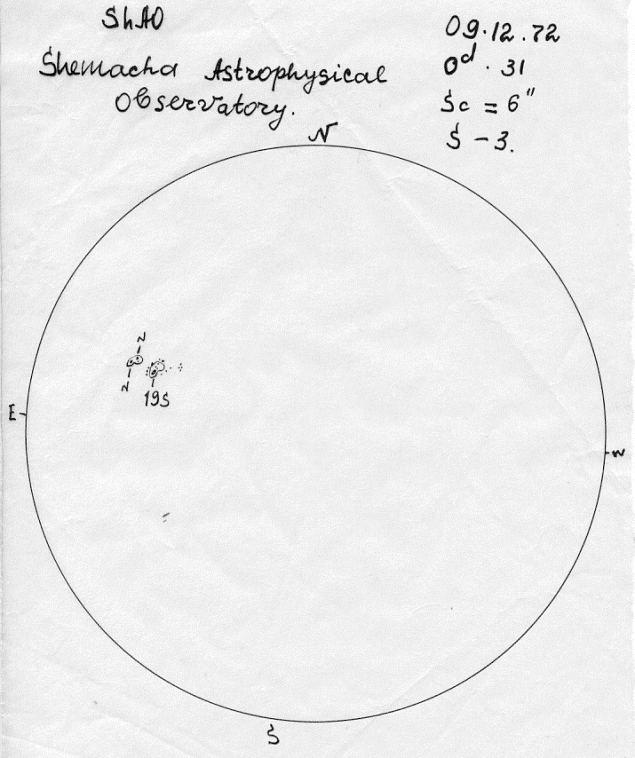 ShAO
Shemacha Astrophysical
Observatory.
09.12.72
0d.31
Sc = 6"
S - 3.
N
N
N
19S
E
W
S